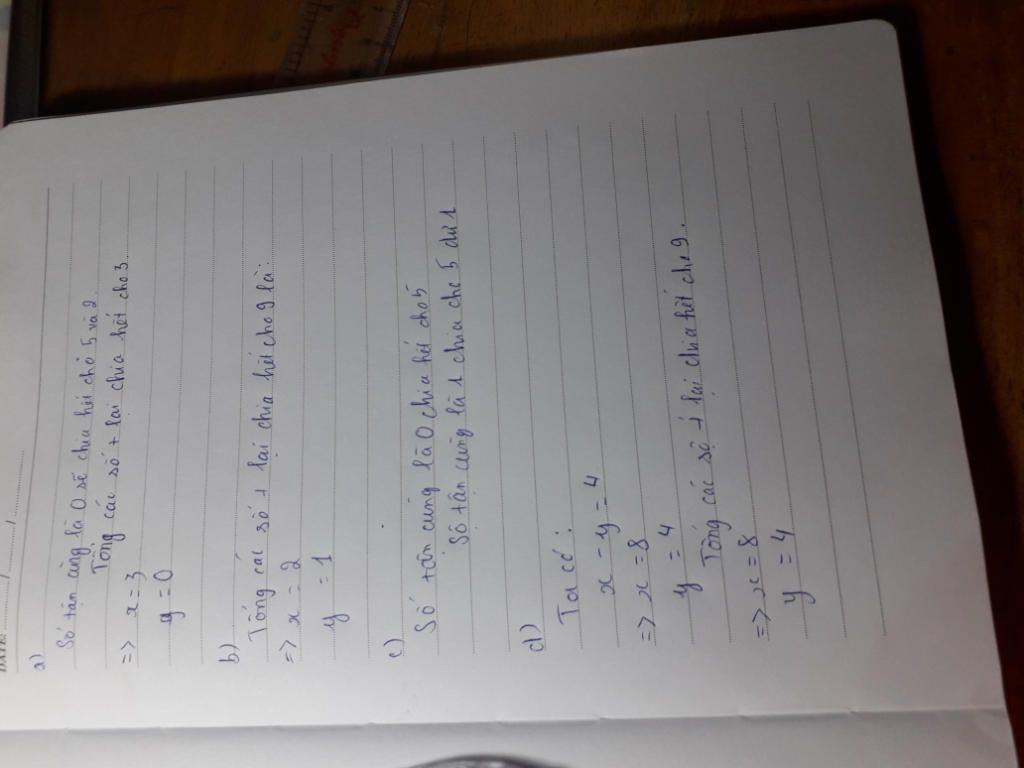 DATE: ....../....../......
a)
Số tận cùng là 0 sẽ chia hết cho 5 và 2.
Tổng các số + lại chia hết cho 3.
=> x = 3
y = 0
b)
Tổng các số + lại chia hết cho 9 là:
=> x = 2
y = 1
c)
Số tận cùng là 0 chia hết cho 5
Số tận cùng là 1 chia cho 5 dư 1
d)
Ta có:
x - y = 4
=> x = 8
y = 4
Tổng các số + lại chia hết cho 9.
=> x = 8
y = 4